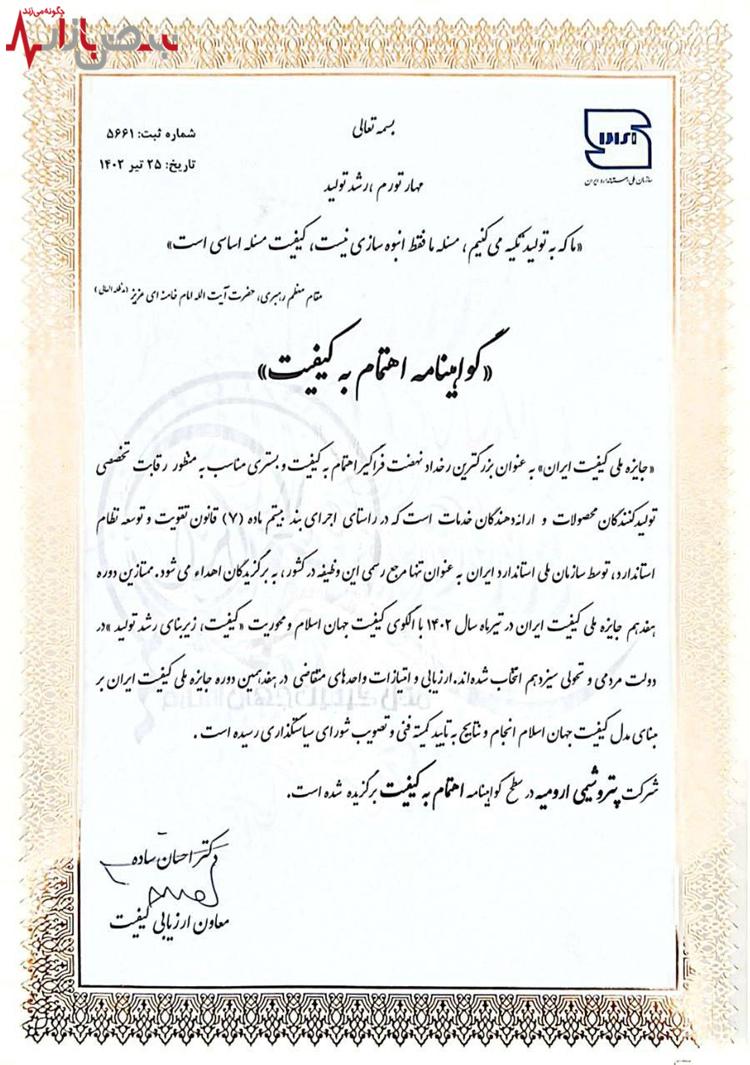 چگونه می‌زند
نبض بازار
بسمه تعالی
شماره ثبت: ۵۶۶۱
تاریخ: ۲۵ تیر ۱۴۰۲
سازمان ملی استاندارد ایران
مهار تورم ، رشد تولید
«ما که به تولید تکیه می کنیم ، مسئله ما فقط انبوه سازی نیست، کیفیت مسئله اساسی است»
مقام معظم رهبری، حضرت آیت الله امام خامنه ای عزیز (مدظله العالی)
«گواهینامه اهتمام به کیفیت»
«جایزه ملی کیفیت ایران» به عنوان بزرگترین رخداد نهضت فراگیر اهتمام به کیفیت و بستری مناسب به منظور رقابت تخصصی
تولیدکنندگان محصولات و ارائه‌دهندگان خدمات است که در راستای اجرای بند بیستم ماده (۷) قانون تقویت و توسعه نظام
استاندارد، توسط سازمان ملی استاندارد ایران به عنوان تنها مرجع رسمی این وظیفه در کشور ، به برگزیدگان اهداء می شود. ممتازین دوره
هفدهم جایزه ملی کیفیت ایران در تیرماه سال ۱۴۰۲ با الگوی کیفیت جهان اسلام و محوریت «کیفیت، زیربنای رشد تولید »در
دولت مردمی و تحولی سیزدهم انتخاب شده‌اند. ارزیابی و امتیازات واحدهای متقاضی در هفدهمین دوره جایزه ملی کیفیت ایران بر
مبنای مدل کیفیت جهان اسلام انجام و نتایج به تایید کمیته فنی و تصویب شورای سیاستگذاری رسیده است .
شرکت پتروشیمی ارومیه در سطح گواهینامه اهتمام به کیفیت برگزیده شده است.
دکتر احسان ساده
معاون ارزیابی کیفیت